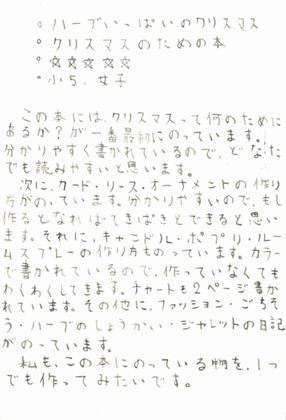 ◦ハーブいっぱいのクリスマス
◦クリスマスのための本
◦☆☆☆☆☆
◦小5.女子
この本には、クリスマスって何のために
あるか？が一番最初にのっています。
分かりやすく書かれているので、どなた
でも読みやすいと思います。
次に、カード・リース・オーナメントの作り
方がのっています。分かりやすいので、もし
作るとなればてきぱきとできると思い
ます。それに、キャンドル・ポプリ・ルー
ムスプレーの作り方ものっています。カラー
で書かれているので、作っていなくても
わくわくしてきます。チャートも2ページ書か
れています。その他に、ファッション・ごちそ
う・ハーブのしょうかい・ジャレットの日記
がのっています。
私も、この本にのっている物を、1つ
でも作ってみたいです。